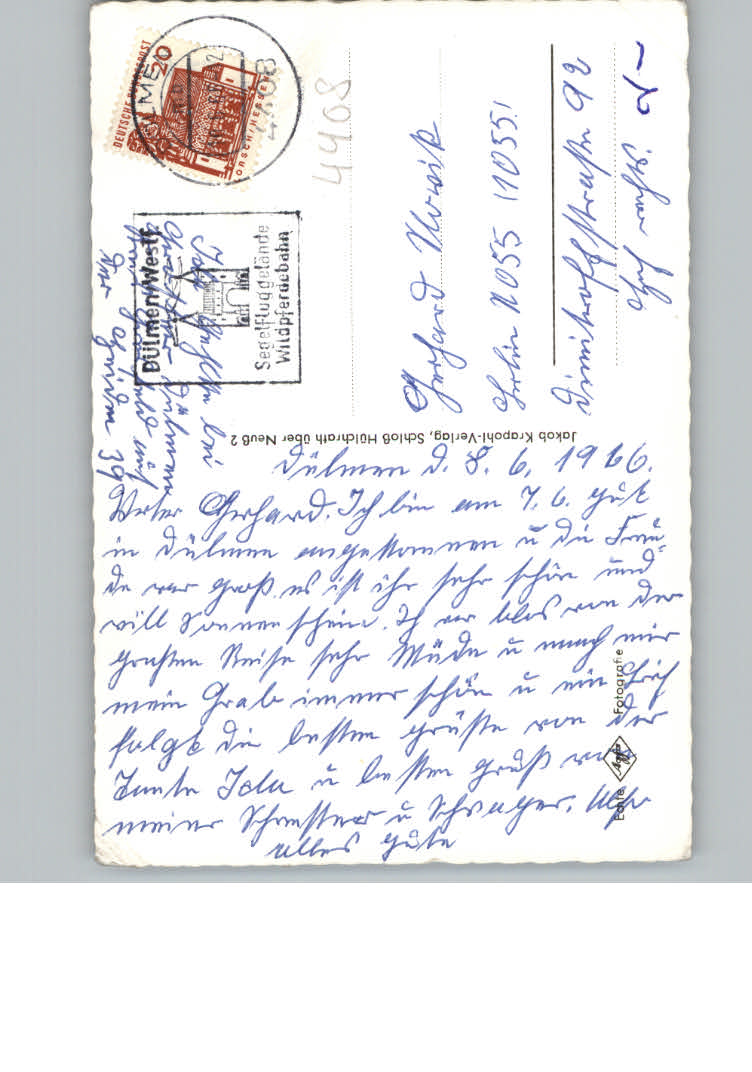 DEUTSCHE BUNDESPOST
20
LORSCH/HESSEN
4408
4408
Dülmen/Westf.
Segelfluggelände
Wildpferdebahn
Gerhard
Berlin N055 (1055)
Dimitroffstraße 92
Ida bei
Dülmen
39
Jakob Krapohl-Verlag, Schloß Hülchrath über Neuß 2
Dülmen d. 8. 6. 1966.
Gerhard. Ich bin am 7. 6. gut
in Dülmen angekommen u die Freu-
de war groß. es ist ihr sehr schön und
will Sonnenschein. Ich war blos von der
großten Reise sehr Müde u mach mir
mein Grab immer schön u ein
folgt die besten grüße von der
Tante Ida u besten gruß von
meiner Schwester u Schwager. Also
alles gute
Echte Agfa Fotografie